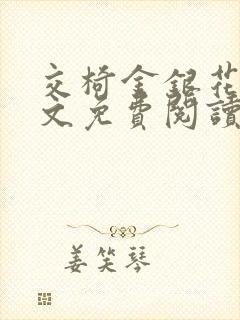 交椅金銀花
文免費閱讀
姜笑琴